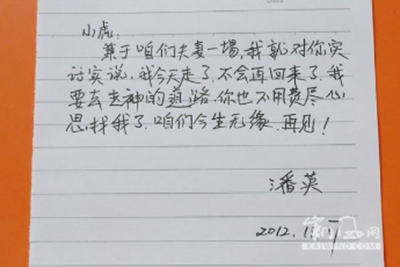 小虎:
基于咱们夫妻一場,我就对你实
话实说,我今天走了.不会再回来了.我
要去走神的道路,你也不用费尽心
思,找我了.咱们今生无缘.再见!
潘英
2012.
KAIWIND.COM